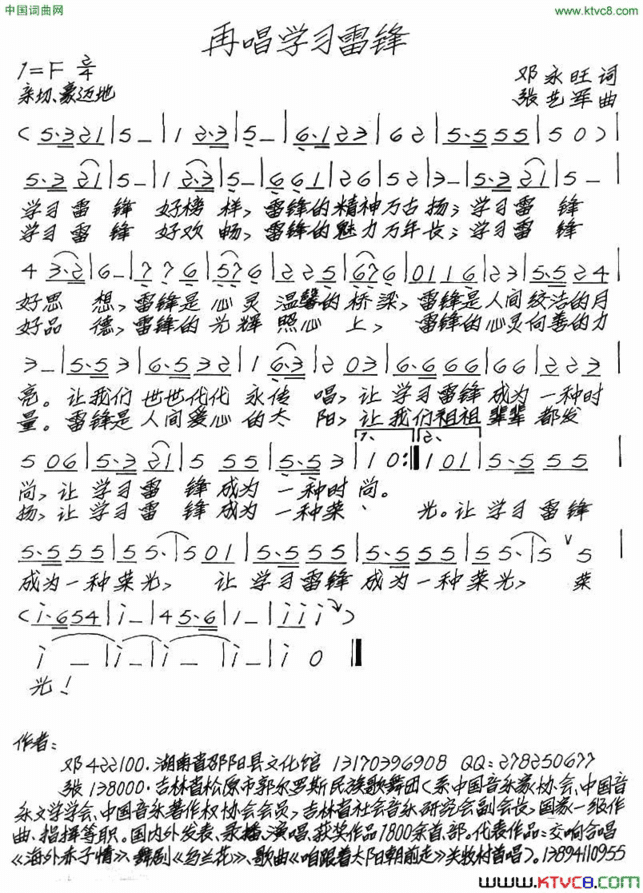 中国词曲网 www.ktvc8.com
再唱学习雷锋
1=F 2/4 邓永旺 词
亲切、豪迈地 张艺军 曲
(5·3 2 1|5 —|1 2·3|5 —|6·1 2 3|6 2|5·5 5 5|5 0)|
5·3 2 1|5 —|1 2·3|5 —|6 6 1|2 6|5 2|3 —|5·3 2 1|5 —|
学习 雷 锋 好榜 样, 雷锋的精神万古扬; 学习雷 锋
学习 雷 锋 好欢 畅, 雷锋的魅力万年长; 学习雷 锋
4 3·2|6 —|7 7 6|5 7 6|2 2 5|6 7 6|0 1 1 6|2 3|5·5 2 4|
好思 想, 雷锋是 心灵 温馨的 桥梁, 雷锋是人间皎洁的月
好品 德, 雷锋的 光辉 照心 上, 雷锋的心灵向善的力
3 —|5·5 3|6·5 3 2|1 6·3|2 0 3|6·6 6 6|6 6|2 2 3|
亮。让我们 世世代代 永传 唱, 让 学习雷锋 成为 一种时
量。雷锋是 人间爱心 的太 阳, 让 我们祖祖 辈辈 都发
5 0 6|5·3 2 1|5 5 5|5·5 3|1. 1 0:‖2. 1 0 1|5·5 5 5|
尚, 让 学习雷 锋 成为 一种时 尚。
扬, 让 学习雷 锋 成为 一种荣、 光。让 学习 雷锋
5·5 5 5|5 5·|5 0 1|5·5 5 5|5·5 5 5|5 5·|5 ∨ 5|
成为一种荣光, 让 学习雷锋 成为一种荣光, 荣
(i·6 5 4|i —|4 5·6|1 —|i i i)
i —|i —|i —|i —|i 0‖
光!
作者:
邓 422100·湖南省邵阳县文化馆 13170396908 QQ:278250677
张 138000·吉林省松原市郭尔罗斯民族歌舞团(系中国音乐家协会、中国音
乐文学学会、中国音乐著作权协会会员,吉林省社会音乐研究会副会长,国家一级作
曲、指挥等职。国内外发表、录播、演唱、获奖作品1800余首、部。代表作品:交响合唱
《海外赤子情》、舞剧《乌兰花》、歌曲《咱跟着太阳朝前走》关牧村首唱)。13894110955
www.KTVC8.com